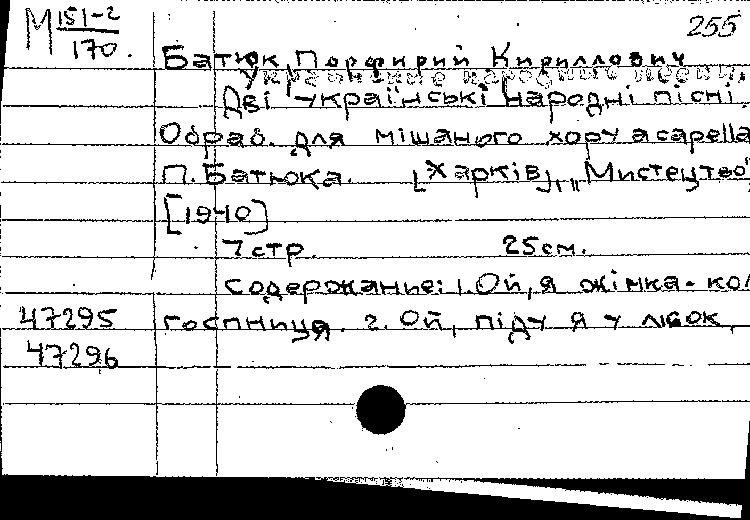 М 151-2
170.
255
Батюк, Порфирий Кириллович
Украинские народные песни.
Дві українські народні пісні.
Обраб. для мішаного хору a capella
П. Батюка. [Харків], "Мистецтво",
[1940]
7 стр. 25 см.
Содержание: 1. Ой, я жінка-кол
47295 госпниця. 2. Ой, піду я у лісок,
47296